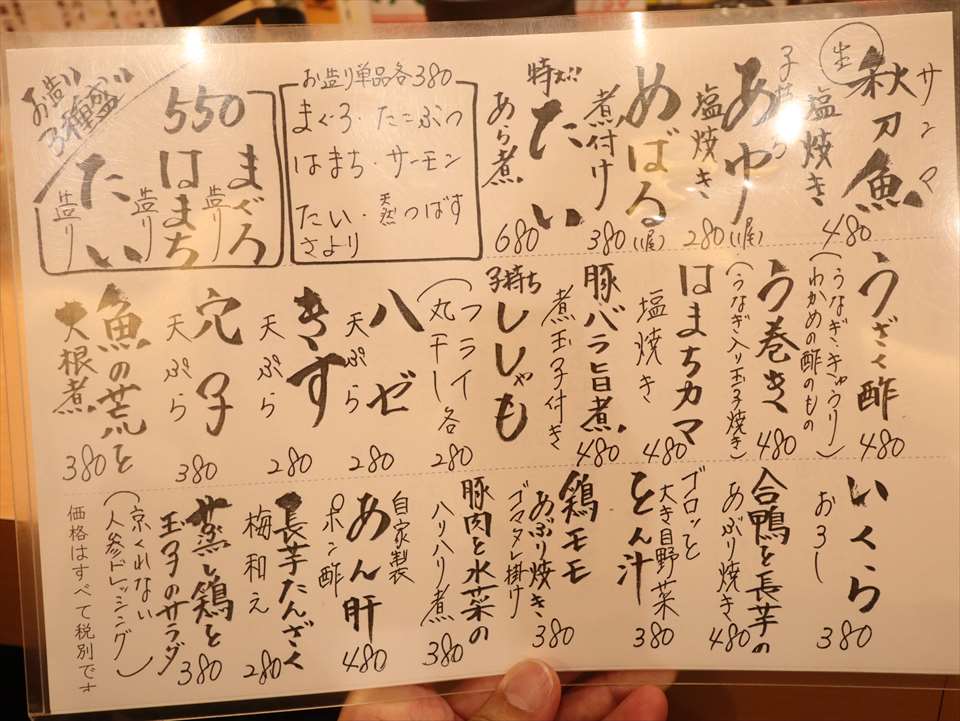 サンマ
秋刀魚
生
塩焼き
480
子持ち
あゆ
塩焼き
280(1尾)
めばる
煮付け
380(1尾)
特大!!
たい
あら煮
680
お造り単品各380
まぐろ・たこぶつ
はまち・サーモン
たい・天然つばす
さより
お造り
3種盛
550
まぐろ
造り
はまち
造り
たい
造り
うざく酢
(うなぎ・キュウリ
わかめの酢のもの)
480
う巻き
(うなぎ入り玉子焼き)
480
はまちカマ
塩焼き
480
豚バラ旨煮
煮玉子付き
480
子持ち
ししゃも
(フライ
丸干し各
280
ハゼ
天ぷら
280
きす
天ぷら
280
穴子
天ぷら
380
魚の荒と
大根煮
380
いくら
おろし
380
合鴨と長芋の
あぶり焼き
480
ゴロッと
大き目野菜
とん汁
380
鶏モモ
あぶり焼き
ゴマタレ掛け
380
豚肉と水菜の
ハリハリ煮
380
自家製
あん肝
ポン酢
480
長芋たんざく
梅和え
280
蒸し鶏と
玉子のサラダ
380
(京くれない
人参ドレッシング)
価格はすべて税別です